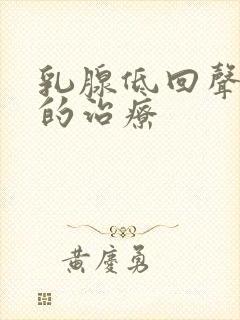 乳腺低回聲
的治療
黃慶勇